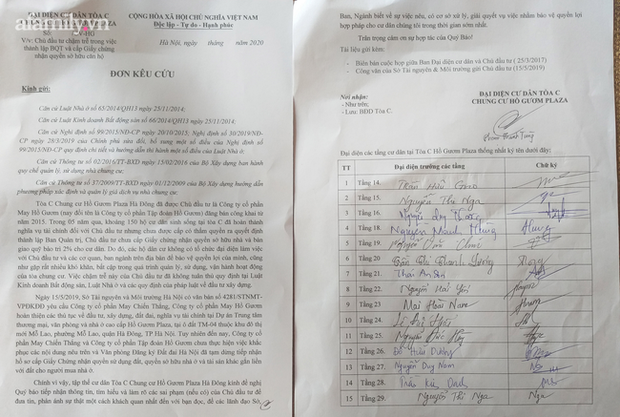 afamily.vn
ĐẠI DIỆN CƯ DÂN TÒA C
CỘNG HÒA XÃ HỘI CHỦ NGHĨA VIỆT NAM
Độc lập - Tự do - Hạnh phúc
V/v: Chủ đầu tư chậm trễ trong việc
thành lập BQT và cấp Giấy chứng
nhận sở hữu căn hộ
Hà Nội, ngày tháng năm 2020
ĐƠN KÊU CỨU
Kính gửi:
Căn cứ Luật Nhà ở số 65/2014/QH13 ngày 25/11/2014;
Căn cứ Luật Kinh doanh Bất động sản số 66/2014/QH13 ngày 25/11/2014;
Căn cứ Nghị định số 99/2015/NĐ-CP ngày 20/10/2015; Nghị định số 30/2019/NĐ-
CP ngày 28/3/2019 của Chính phủ sửa đổi, bổ sung một số điều của Nghị định số
99/2015/NĐ-CP quy định chi tiết và hướng dẫn thi hành một số điều của Luật Nhà ở;
Căn cứ Thông tư số 02/2016/TT-BXD ngày 15/02/2016 của Bộ Xây dựng ban hành
quy chế quản lý, sử dụng nhà chung cư;
Căn cứ Thông tư số 37/2009/TT-BXD ngày 01/12/2009 của Bộ Xây dựng hướng dẫn
phương pháp xác định và quản lý giá dịch vụ nhà chung cư;
Tòa C Chung cư Hồ Gươm Plaza Hà Đông đã được Chủ đầu tư là Công ty cổ phần
May Hồ Gươm (nay đổi tên là Công ty cổ phần Tập đoàn Hồ Gươm) đăng bán công khai từ
năm 2015. Trong 05 năm qua, khoảng 150 hộ cư dân sinh sống tại tòa C đã hoàn thành
nghĩa vụ tài chính đối với Chủ đầu tư nhưng chưa được cấp có thẩm quyền ra quyết định
thành lập Ban Quản trị, Chủ đầu tư chưa cấp Giấy chứng nhận quyền sở hữu nhà và bàn
giao quỹ bảo trì 2% cho cư dân. Do đó, các hộ dân cư không có tổ chức đại diện làm việc
với Chủ đầu tư và các cơ quan, ban ngành trên địa bàn để bảo vệ quyền lợi của mình, cũng
như gặp rất nhiều khó khăn, bất cập trong quá trình quản lý, sử dụng, vận hành hoạt động
của tòa chung cư. Việc chậm trễ này của Chủ đầu tư đã không tuân thủ quy định tại Luật
Kinh doanh Bất động sản, Luật Nhà ở và các quy định của pháp luật về đầu tư xây dựng.
Ngày 15/5/2019, Sở Tài nguyên và Môi trường Hà Nội có văn bản số 4281/STNMT-
VPĐKĐĐ yêu cầu Công ty cổ phần May Chiến Thắng, Công ty cổ phần May Hồ Gươm
hoàn thiện các thủ tục về đầu tư, xây dựng, đất đai, nghĩa vụ tài chính tại Dự án Trung tâm
thương mại, văn phòng và nhà ở cao cấp Hồ Gươm Plaza, tại ô đất TM-04 thuộc khu đô thị
mới Mỗ Lao, phường Mộ Lao, quận Hà Đông, TP Hà Nội. Tuy nhiên đến nay, Công ty cổ
phần May Chiến Thắng và Công ty cổ phần Tập đoàn Hồ Gươm chưa thực hiện việc khắc
phục các nội dung nêu trên và Văn phòng Đăng ký Đất đai Hà Nội đã tạm dừng tiếp nhận
hồ sơ cấp Giấy Chứng nhận quyền sử dụng đất, quyền sở hữu nhà ở và tài sản khác gắn liền
với đất cho người mua nhà ở.
Chính vì vậy, tập thể cư dân Tòa C Chung cư Hồ Gươm Plaza Hà Đông kính đề nghị
Quý báo tiếp nhận thông tin, tìm hiểu và làm rõ các sai phạm (nếu có) của Chủ đầu tư để
đưa tin, phản ánh sự thật một cách khách quan nhất đến với bạn đọc, để các lãnh đạo Sở,
Ban, Ngành biết về sự việc nêu, có cơ sở xử lý, giải quyết vụ việc nhằm bảo vệ quyền lợi
hợp pháp cho cư dân chúng tôi trong thời gian sớm nhất.
Trân trọng cảm ơn sự hợp tác của Quý Báo!
Tài liệu gửi kèm:
- Biên bản cuộc họp giữa Ban Đại diện cư dân và Chủ đầu tư ( 25/3/2017)
- Công văn của Sở Tài nguyên & Môi trường gửi Chủ đầu tư (15/5/2019)
Nơi nhận:
- Như trên;
- Lưu: BĐD Tòa C.
ĐẠI DIỆN CƯ DÂN TÒA C
CHUNG CƯ HỒ GƯƠM PLAZA
Đại diện các tầng cư dân tại Tòa C Hồ Gươm Plaza thống nhất ký tên dưới đây:
TT Đại diện trưởng các tầng Chữ ký
1 Tầng 14.
2 Tầng 15. Nguyễn Thị Nga
3 Tầng 16.
4 Tầng 18 Nguyễn Mạnh Hùng
5 Tầng 19
6 Tầng 20
7 Tầng 21.
8 Tầng 22.
9 Tầng 23. Mai Hoài Nam
10 Tầng 24.
11 Tầng 25
12 Tầng 26. Hải Dương
13 Tầng 27. Nguyễn Duy Nam
14 Tầng 28.
15 Tầng 29. Nguyễn Thị Nga